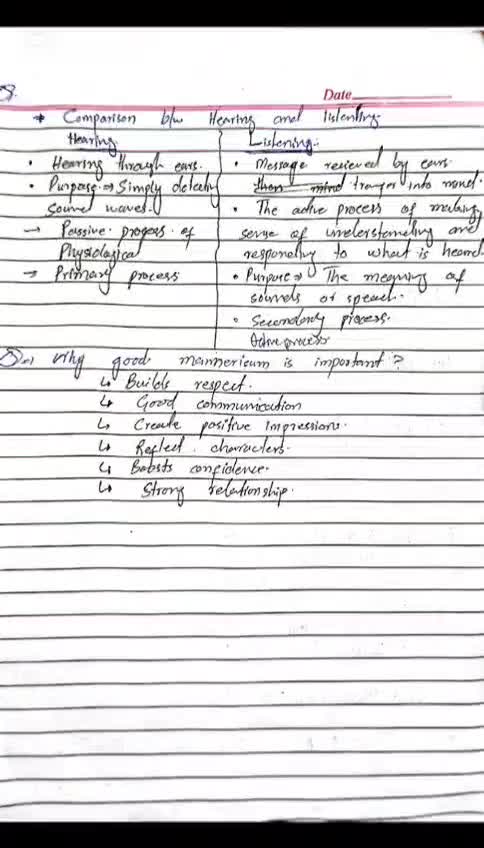 Date
→ Comparison b/w Hearing and listenting
Hearing
• Hearing through ears.
• Purpose → Simply detecty
sound waves.
→ Passive progers of
Physiological
→ Primary process
Listening:
• Message recieved by ears.
then mind tranger into mind.
• The active process of making
sense of understanding and
responding to what is heard
• Purpure → The meaning of
sounds of speach.
• Secondary process.
Active process
why good mannerieum is important?
↳ Builds respect.
↳ Good communication
↳ Create positive Impressions.
↳ Reflect. characters.
↳ Bobsts confidence.
↳ Strong relationship.